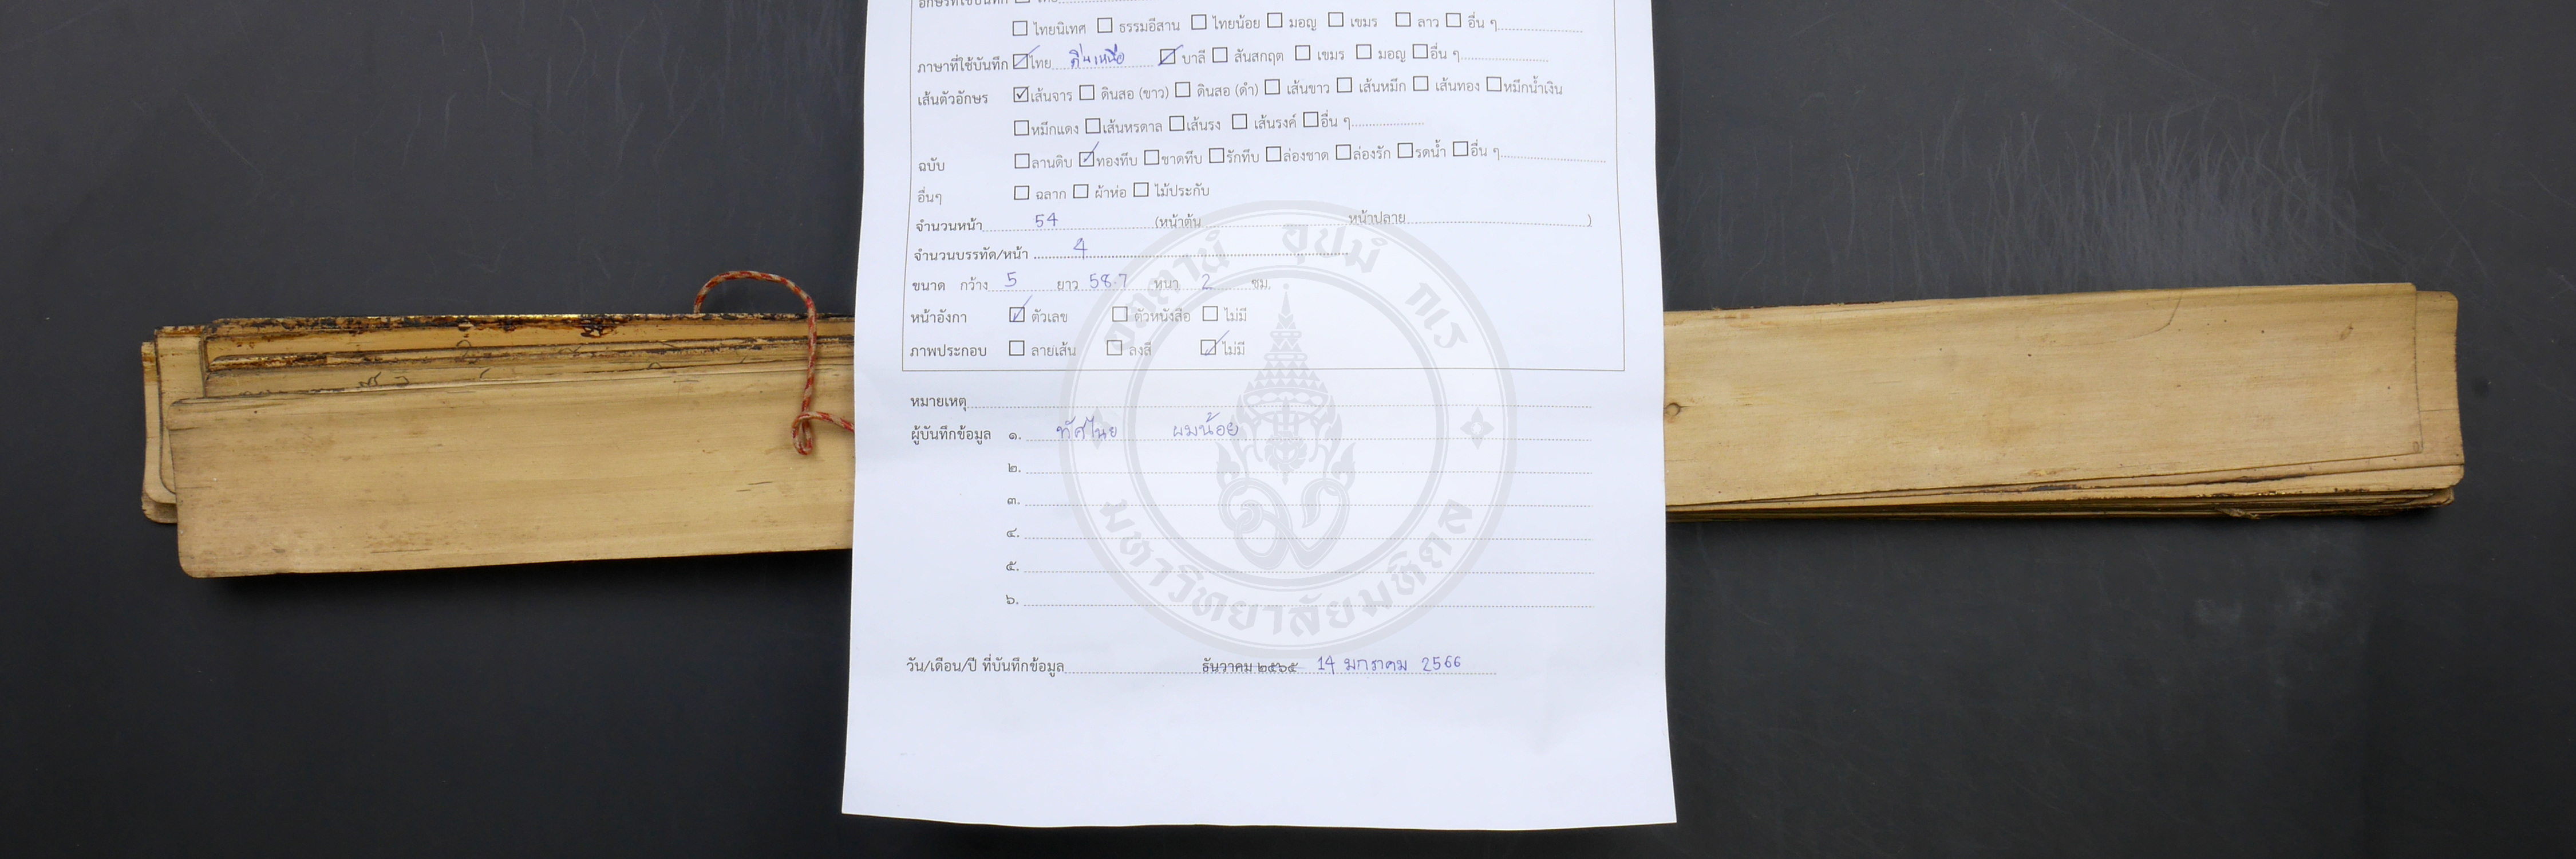 อักษรที่ใช้บันทึก ☐ ไทย
☐ ไทยนิเทศ ☐ ธรรมอีสาน ☐ ไทยน้อย ☐ มอญ ☐ เขมร ☐ ลาว ☐ อื่น ๆ
ภาษาที่ใช้บันทึก ☑ ไทย ถิ่นเหนือ ☑ บาลี ☐ สันสกฤต ☐ เขมร ☐ มอญ ☐ อื่น ๆ
เส้นตัวอักษร ☑ เส้นจาร ☐ ดินสอ (ขาว) ☐ ดินสอ (ดำ) ☐ เส้นขาว ☐ เส้นหมึก ☐ เส้นทอง ☐ หมึกน้ำเงิน
☐ หมึกแดง ☐ เส้นหรดาล ☐ เส้นรง ☐ เส้นรงค์ ☐ อื่น ๆ
ฉบับ ☐ ลานดิบ ☑ ทองทึบ ☐ ชาดทึบ ☐ รักทึบ ☐ ล่องชาด ☐ ล่องรัก ☐ รดน้ำ ☐ อื่น ๆ
อื่นๆ ☐ ฉลาก ☐ ผ้าห่อ ☐ ไม้ประกับ
จำนวนหน้า 54 (หน้าต้น หน้าปลาย )
จำนวนบรรทัด/หน้า 4
ขนาด กว้าง 5 ยาว 58.7 หนา 2 ซม.
หน้าอังกา ☑ ตัวเลข ☐ ตัวหนังสือ ☐ ไม่มี
ภาพประกอบ ☐ ลายเส้น ☐ ลงสี ☑ ไม่มี
หมายเหตุ
ผู้บันทึกข้อมูล ๑. ทัศไนย ผมน้อย
๒.
๓.
๔.
๕.
๖.
วัน/เดือน/ปี ที่บันทึกข้อมูล ธันวาคม ๒๕๖๕ 14 มกราคม 2566
อตฺตานํ อุปมํ กเร
มหาวิทยาลัยมหิดล